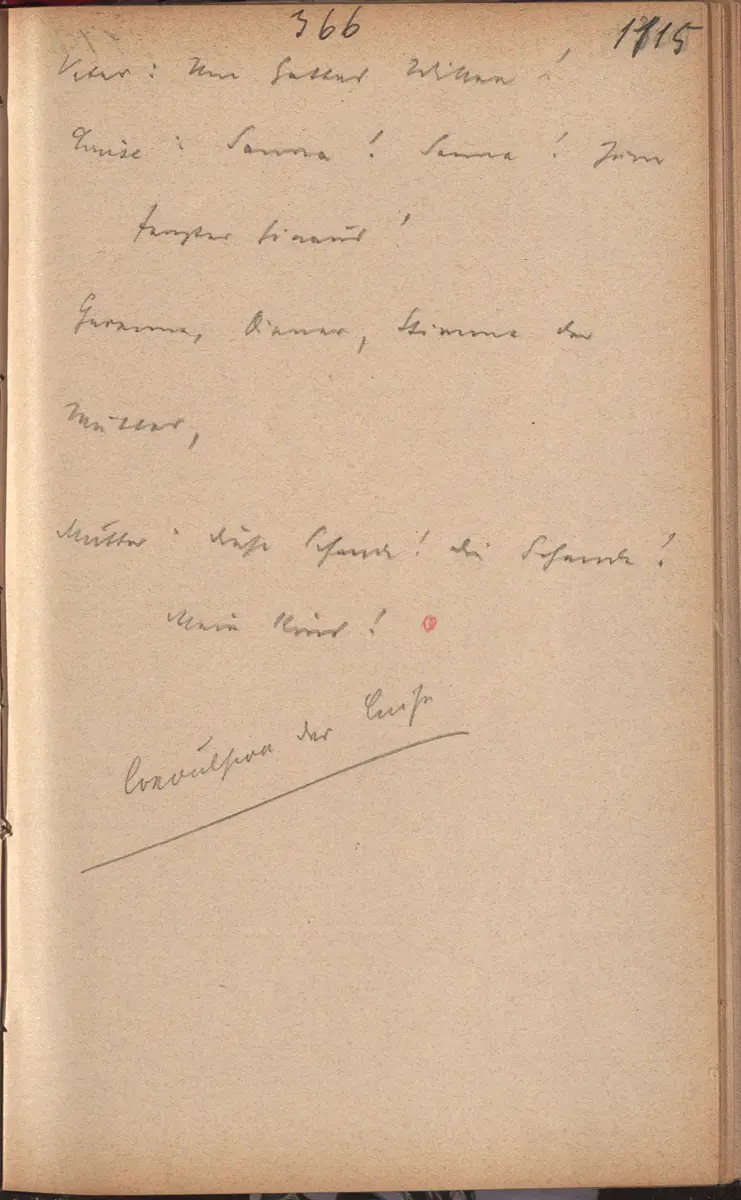 366
1115
Vater: Um Gottes Willen!
Luise: Sanna! Sanna! Zum
Fenster hinaus!
Gerenne, Diener, Stimme der
Mutter,
Mutter: diese Schande! die Schande!
Mein Kind!
Convulsion der Luise